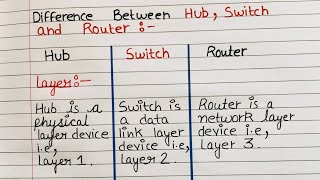 Difference Between Hub, Switch
and Router :-
Hub
Switch
Router
Layer:-
Hub is a
physical
layer device
i.e,
layer 1.
Switch is
a data
link layer
device i.e,
layer 2.
Router is a
network layer
device i.e,
layer 3.